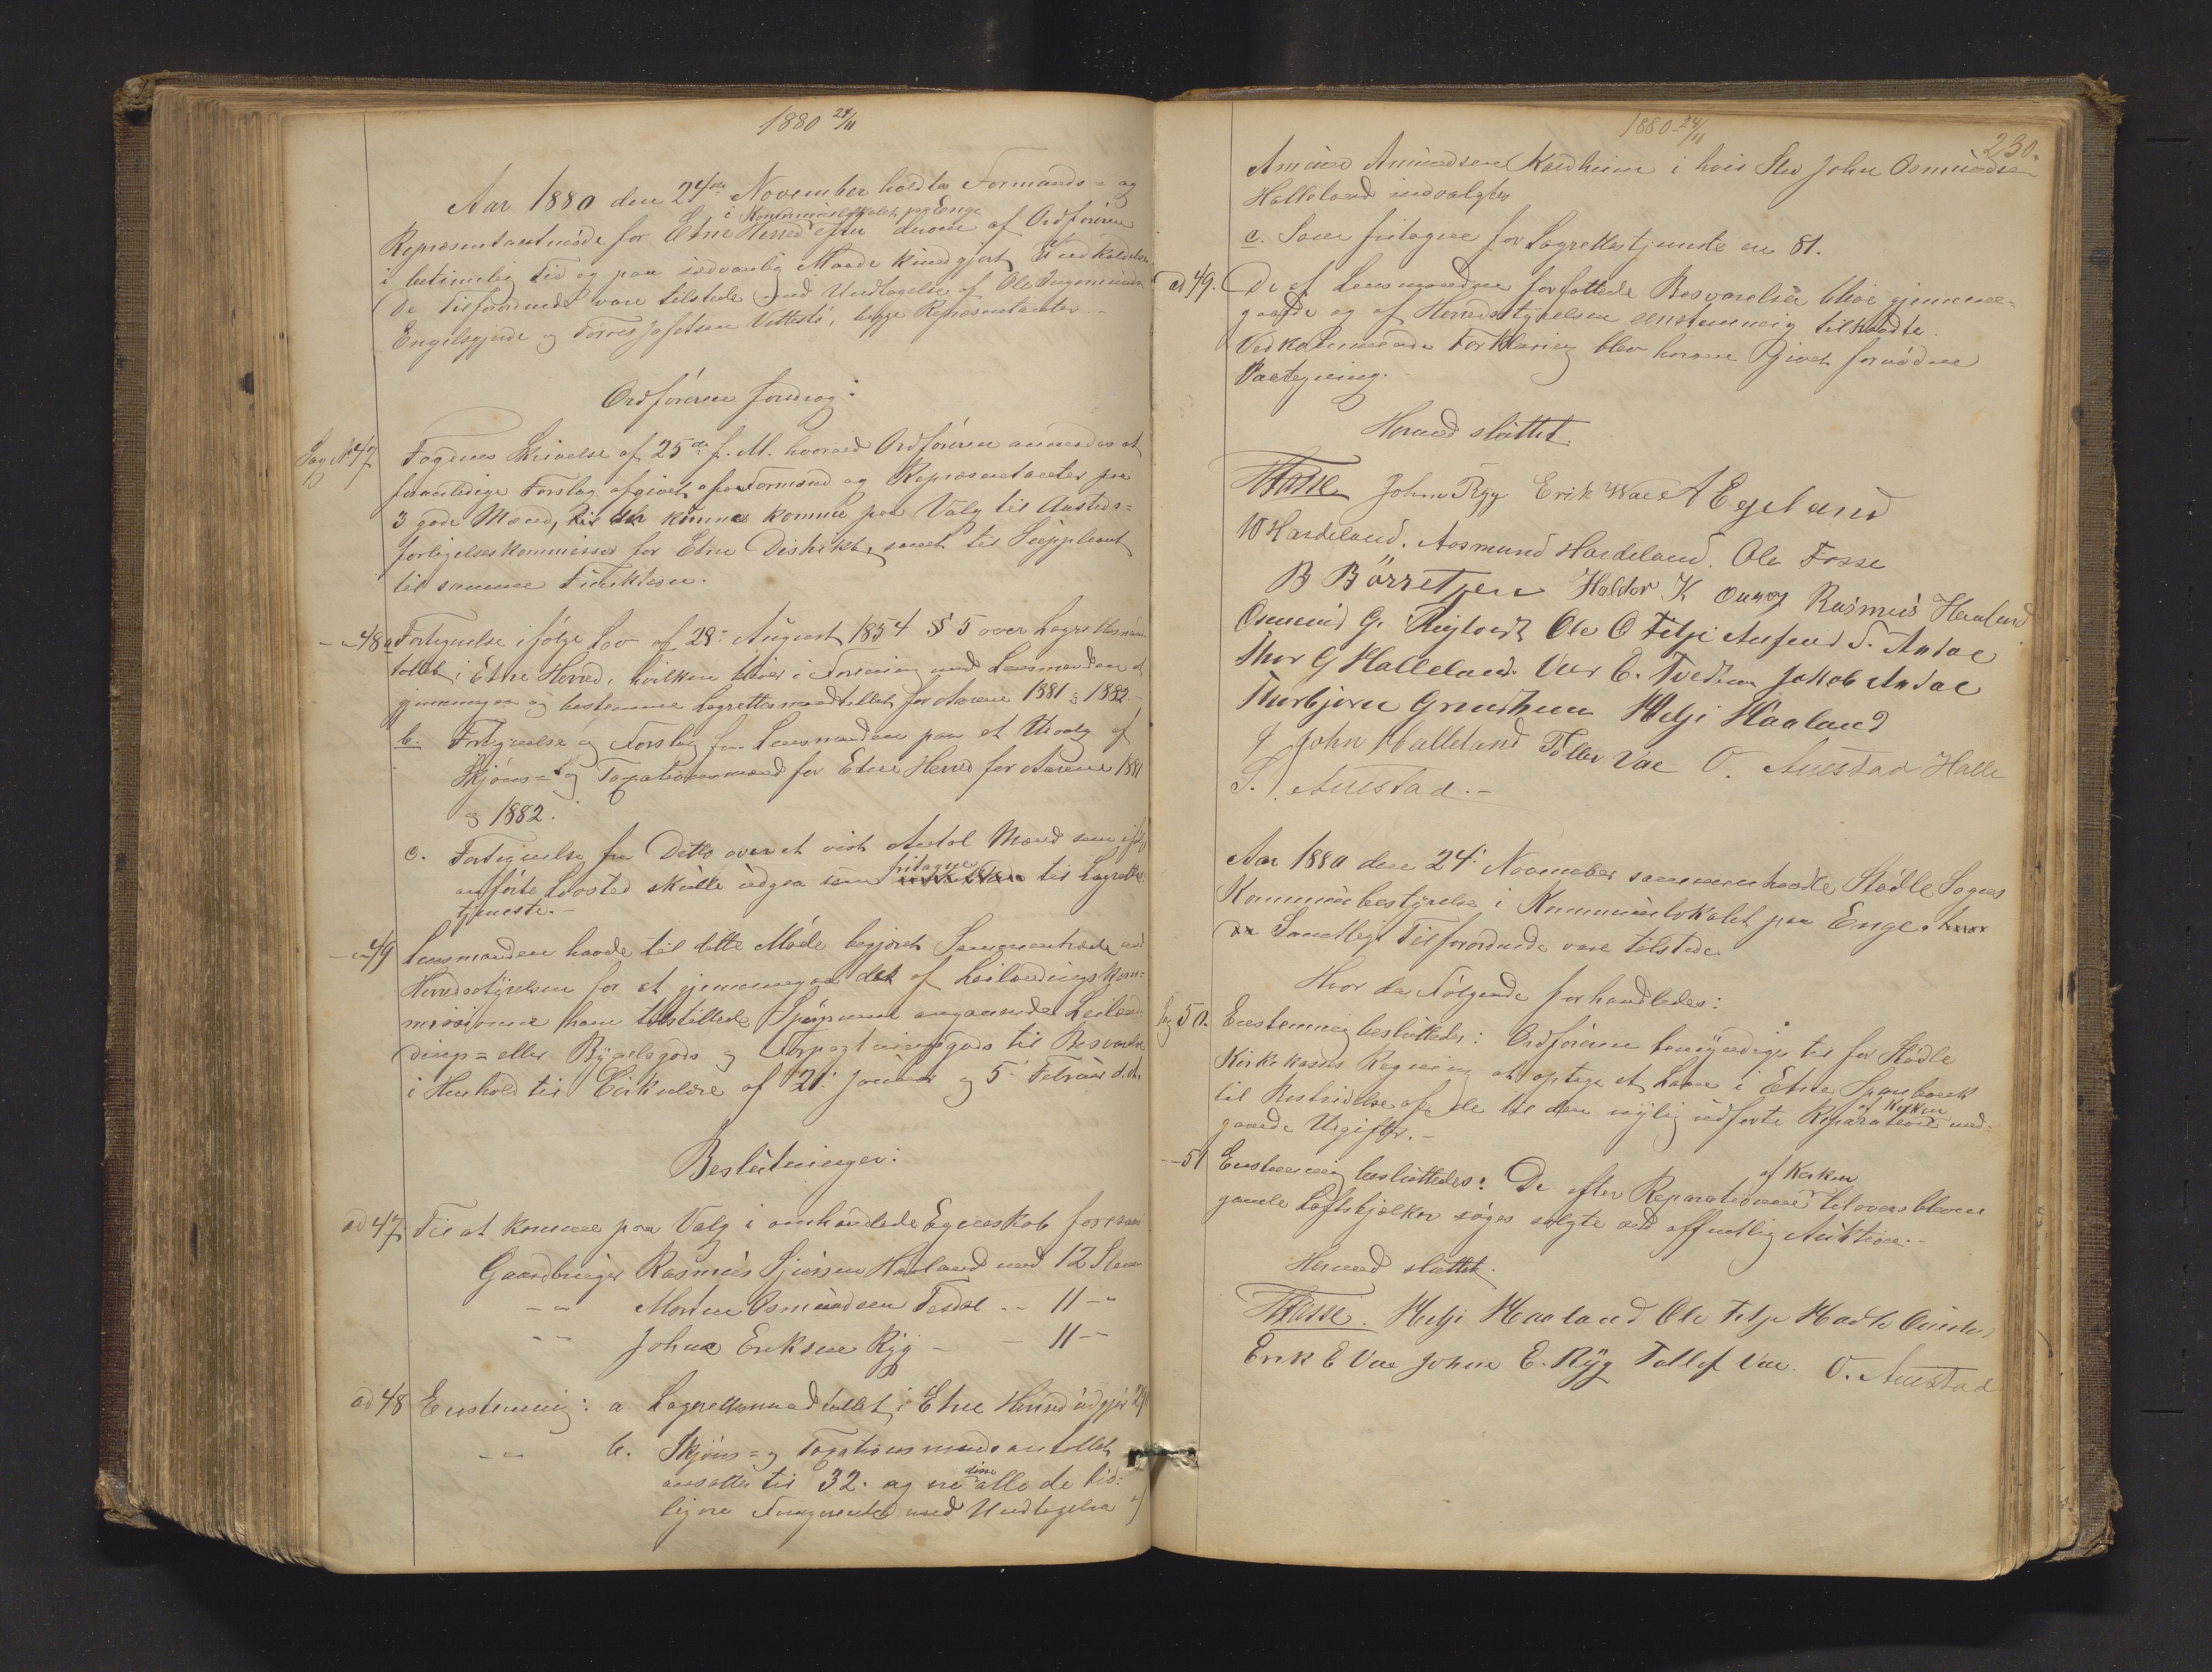 1880 24/11
Aar 1880 den 24de November holdtes Formands- og
i Kommunelokalet paa Enge
Repræsentantmøde for Etne Herred efter derom af Ordføreren
i betimelig Tid og paa sædvanlig Maade kundgjort Indkaldelse.
De Tilforordnede vare tilstede med Undtagelse af Ole Ingemundsen
Engelsgjerde og Torres Josefsen Vettestø, begge Repræsentanter.
Ordføreren foredrog:
Sag No 47 Fogdens Skrivelse af 25de f. M. hvorved Ordføreren anmodes at
foranledige Forslag afgivet af Formænd og Repræsentanter paa
3 gode Mænd, der kunne komme paa Valg til Ansteds-
forligelseskommissær for Etne Distrikt, samt til Suppleant
til samme Funktion.
- 48 a Fortegnelse ifølge Lov af 28: August 1854 § 5 over Lagrettesmands-
tallet i Etne Herred, hvilken bliver i Forening med Lensmanden at
gjennemgaa og bestemme Lagrettesmandtallet for Aarene 1881 og 1882.
b. Fortegnelse og Forslag fra Lensmanden paa et Udvalg af
Skjøns- og Taxationsmænd for Etne Herred for Aarene 1881
og 1882.
c. Fortegnelse fra Ditto over et vist Antal Mænd som ifølge
anførte Lovsted skulle udgaa som fritagne til Lagrettes-
tjeneste.-
- 49 Lensmanden havde til dette Møde begjæret Sammentræde med
Herredsstyrelsen for at gjennemgaa det af Leilændingskom-
missionen ham tilstillede Spørgsmaal angaaende Leilæn-
dings- eller Bygselsgods og Forpagtningsgods til Besvarelse
i Henhold til Cirkulære af 21: Januar og 5: Februar d. A.
Beslutninger:
ad 47 Til at komme paa Valg i omhandlede Egenskab foresloges
Gaardbruger Rasmus Sjursen Haaland med 12 Stem
-"- Morten Osmundsen Tesdal -- 11 -"
-"- Johne Eriksen Ryg - - 11 --
ad 48 Enstemmig: a Lagrettesmandtallet i Etne Herred udgjør 291
-"- b. Skjøns- og Taxationsmandsantallet
ansattes til 32. og ere disse alle de tid-
ligere Fungerende med Undtagelse af
1880-24/11
230.
Amund Amundsen Kardheim i hvis Sted John Osmundsen
Halleland indvalgtes
c. Som fritagne for Lagrettestjeneste ere 81.
ad 49. De af Lensmanden forfattede Besvarelser bleve gjennem-
gaaede og af Herredsstyrelsen enstemmig tiltraadte.
Vedkommende Forklaring blev herom givet fornøden
Paategning.
Hermed sluttet.
Fosse John Ryg Erik Vae A Egeland
W Hardeland. Aasmund Hardeland. Ole Fosse
B Børretzen Haldor K Rasmus Haaland
Osmund G. Ole O Fitje S. Andal
Thor G Halleland. Jakob Andal
Thorbjørn Grindheim Helje Haaland
John Halleland Tollev Vae O. Austad Halle
S. Austad.-
Aar 1880 den 24: November sammenholdte Stødle Sogns
Kommunebestyrelse i Kommunelokalet paa Enge.
Samtlige Tilforordnede vare tilstede.
Hvor da Følgende forhandledes:
Sag 50. Enstemmig besluttedes: Ordføreren bemyndiges til for Stødle
Kirkekasses Regning at optage et Laan i Etne Sparebank
til Bestridelse af de til den nylig udførte Reparation af Kirken med-
gaaede Udgifter.-
- 51 Enstemmig besluttedes: De efter Reparationen af Kirken tiloversblevne
gamle Loftsbjælker søges solgte ved offentlig Auktion.-
Hermed sluttet.
Fosse. Helje Haaland Ole Fitje
Erik E Vae Johne E. Ryg Tollef Vae. O. Austad